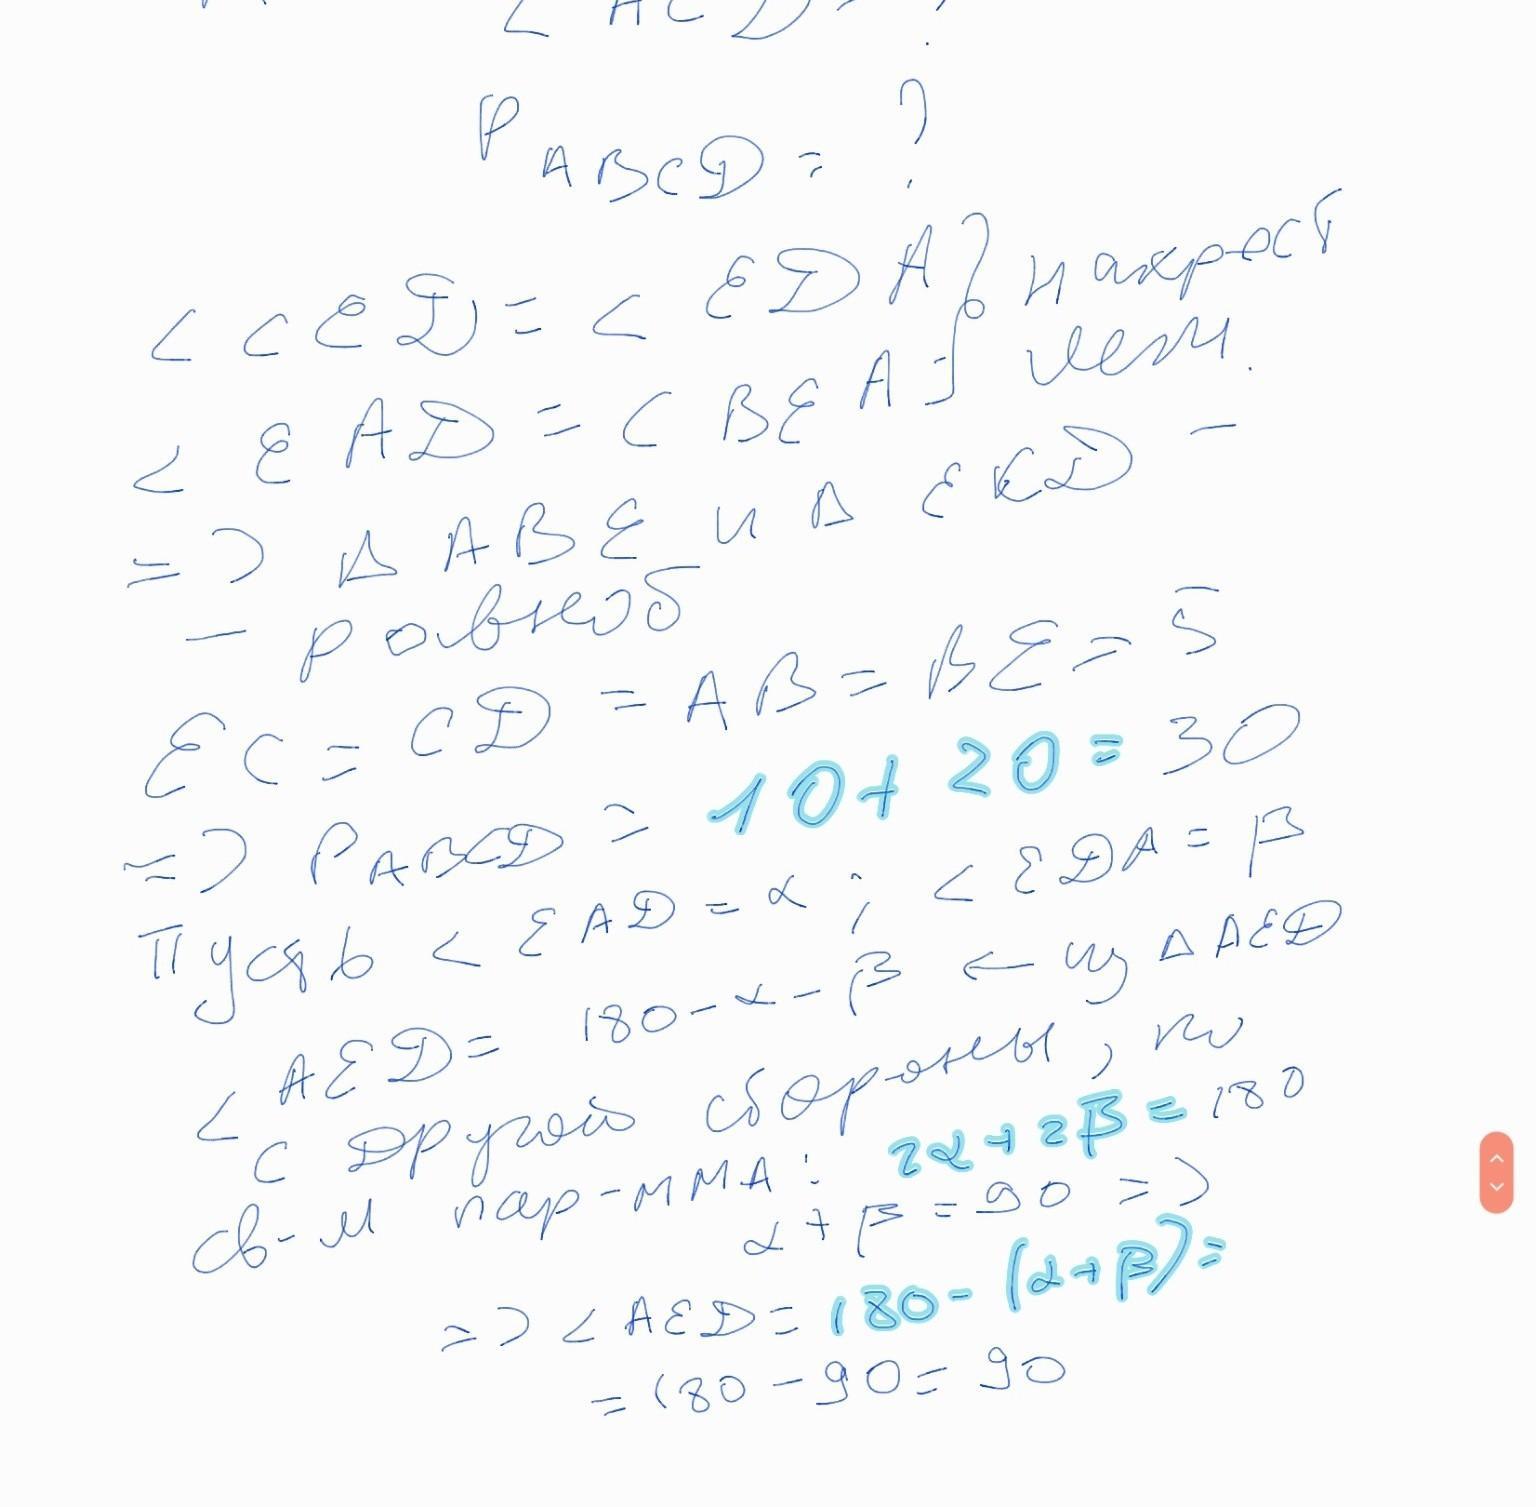 < ACD = ?
P ABCD = ?
< CED = < EDA } накрест
< EAD = < BEA } леж.
=> Δ ABE и Δ ECD -
- равноб
EC = CD = AB = BE = 5
=> P ABCD = 10 + 20 = 30
Пусть < EAD = α ; < EDA = β
< AED = 180 - α - β ← из Δ AED
С другой стороны, по
св-м пар-мма: 2α + 2β = 180
α + β = 90 =>
=> < AED = 180 - (α + β) =
= 180 - 90 = 90